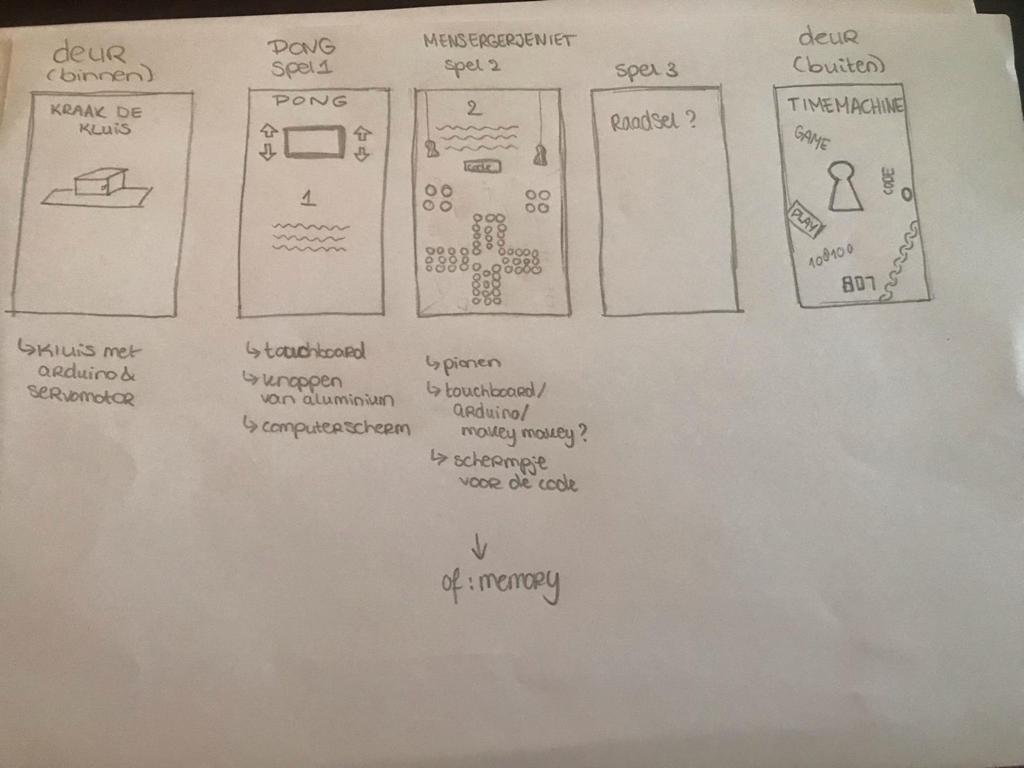 deur
(binnen)
KRAAK DE
KLUIS
↳ Kluis met
arduino &
servomotor
PONG
Spel 1
PONG
1
↳ touchboard
↳ knoppen
van aluminium
↳ computerscherm
MENSERGERJENIET
Spel 2
2
code
↳ pionen
↳ touchboard/
arduino/
makey makey?
↳ schermpje
voor de code
↓
of: memory
Spel 3
Raadsel?
deur
(buiten)
TIMEMACHINE
GAME
CODE
PLAY
100100
807